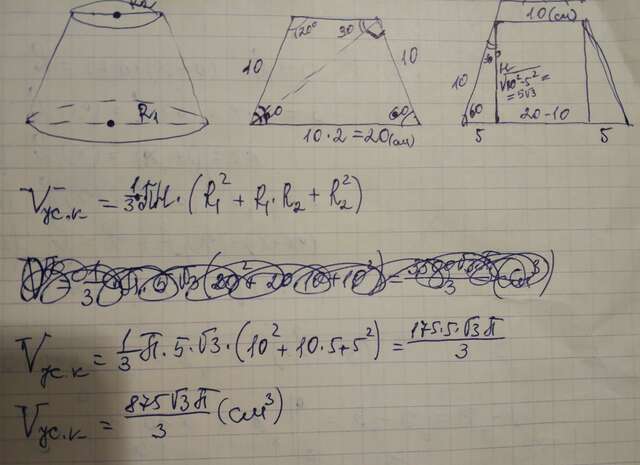 R₂
R₁
120° 30
10 10
60 60
10·2=20(см)
10(см)
30°
H
√10²-5² =
=5√3
10
60 20-10
5 5
Vус.к = 1/3 πH·(R₁² + R₁·R₂ + R₂²)
Vус.к = 1/3 π·5·√3·(10²+10·5+5²) = 175·5·√3π/3
Vус.к = 875√3π/3 (см³)